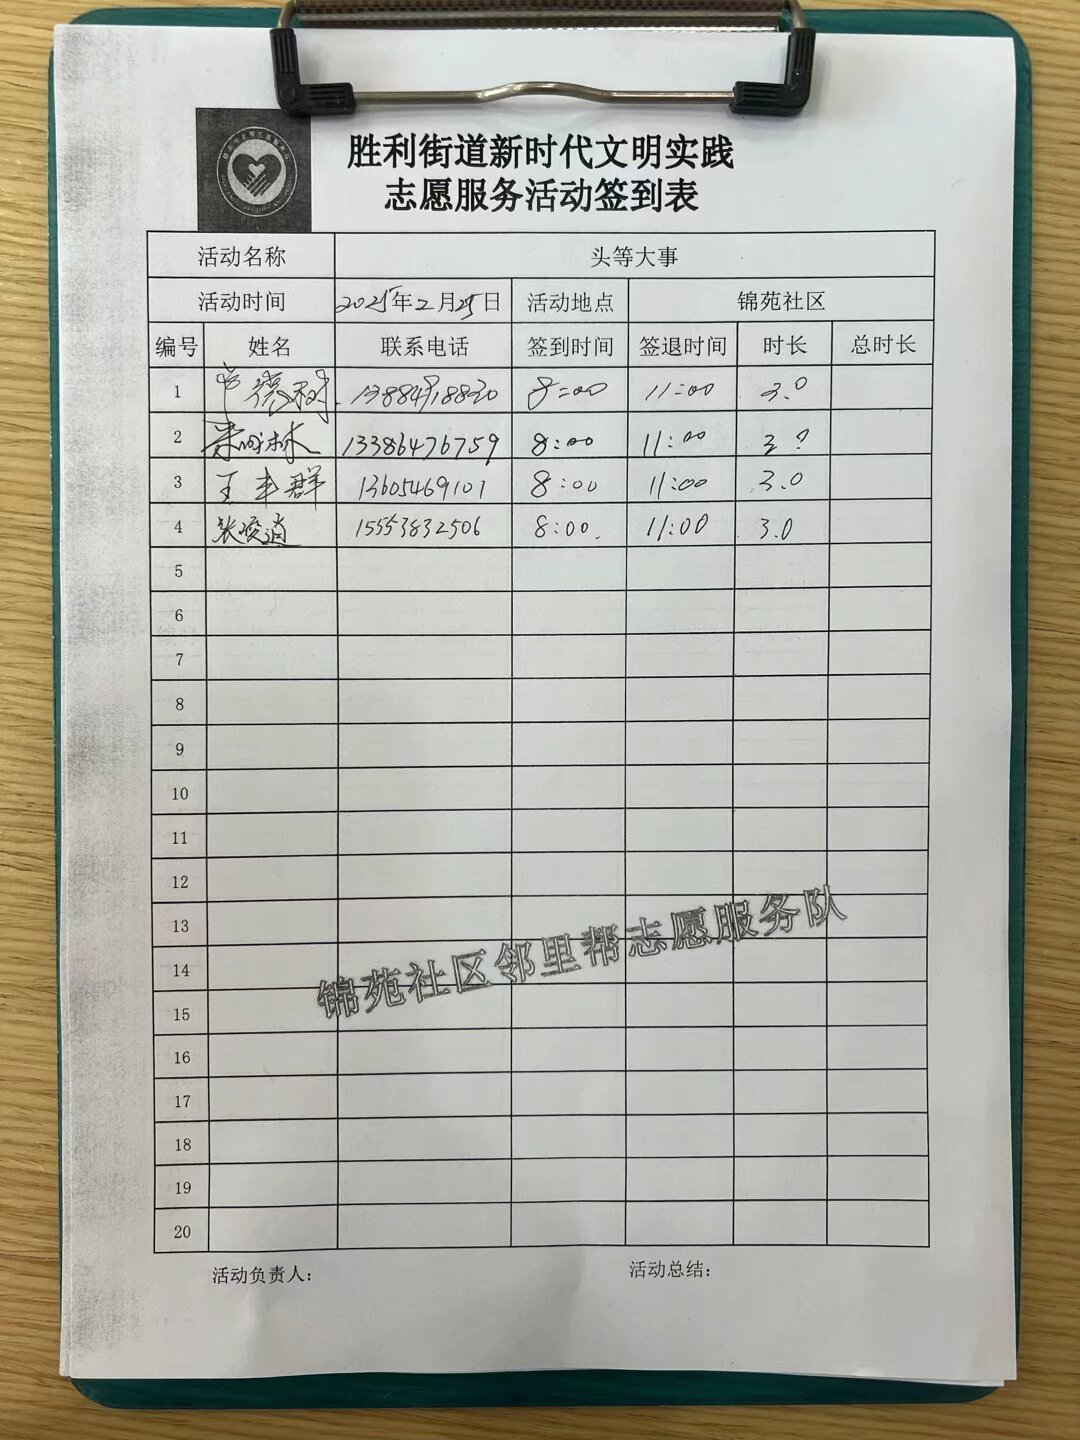 胜利街道新时代文明实践
志愿服务活动签到表
活动名称 头等大事
活动时间 2025年2月25日 活动地点 锦苑社区
编号 姓名 联系电话 签到时间 签退时间 时长 总时长
1 德树 8:00 11:00 3.0
2 林 13386476759 8:00 11:00 3.0
3 王丰群 13605469101 8:00 11:00 3.0
4 张俊道 15553832506 8:00 11:00 3.0
5
6
7
8
9
10
11
12
13
14
15
16
17
18
19
20
锦苑社区邻里帮志愿服务队
活动负责人: 活动总结: